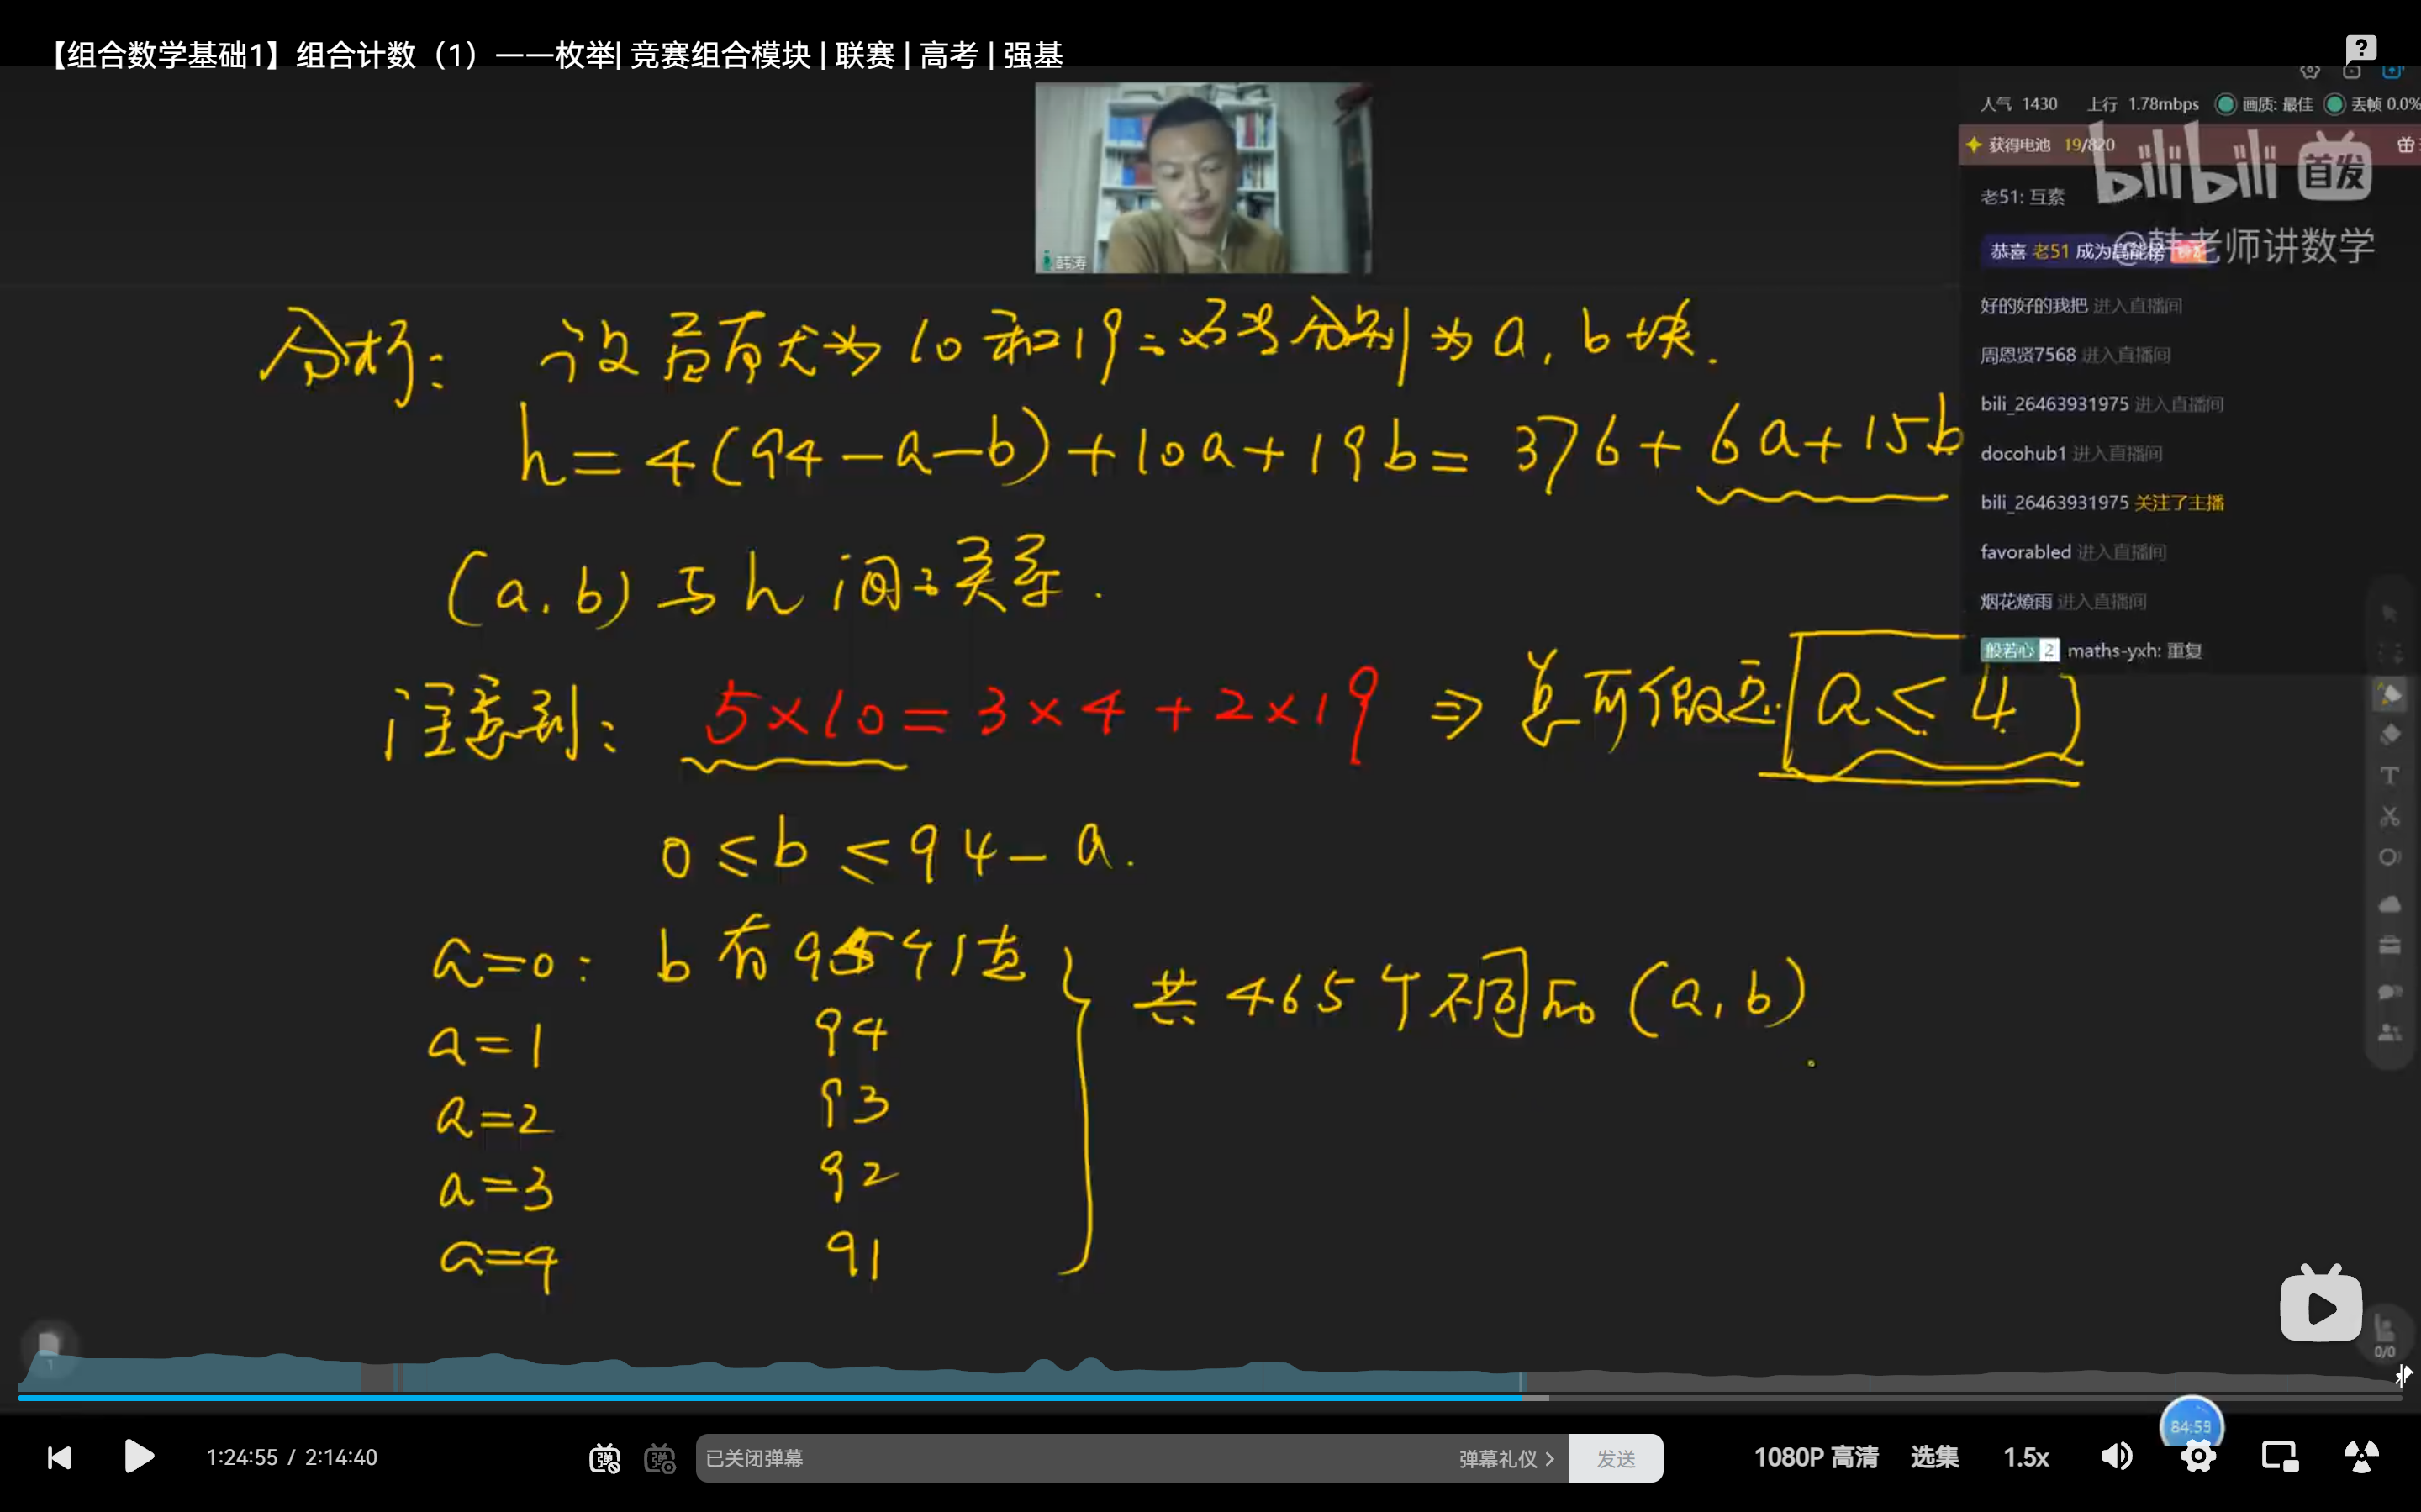 【组合数学基础1】组合计数（1）——枚举| 竞赛组合模块 | 联赛 | 高考 | 强基
人气 1430 上行 1.78mbps 画质: 最佳 丢帧 0.0%
获得电池 19/820
bilibili 首发
老51: 互素
恭喜 老51 成为高能榜
@韩老师讲数学
韩涛
好的好的我把 进入直播间
周恩贤7568 进入直播间
bili_26463931975 进入直播间
docohub1 进入直播间
bili_26463931975 关注了主播
favorabled 进入直播间
烟花燎雨 进入直播间
般若心 2 maths-yxh: 重复
分析: 设高度为10和19的砖分别为a, b块.
h=4(94-a-b)+10a+19b=376+6a+15b
(a,b)与h间的关系.
注意到: 5×10=3×4+2×19 ⇒ 总可假定 a≤4
0≤b≤94-a.
a=0: b有95个值
a=1 94
a=2 93
a=3 92
a=4 91
共465个不同的(a,b)
1
0/0
84:59
1:24:55 / 2:14:40
弹 弹
已关闭弹幕
弹幕礼仪 >
发送
1080P 高清
选集
1.5x